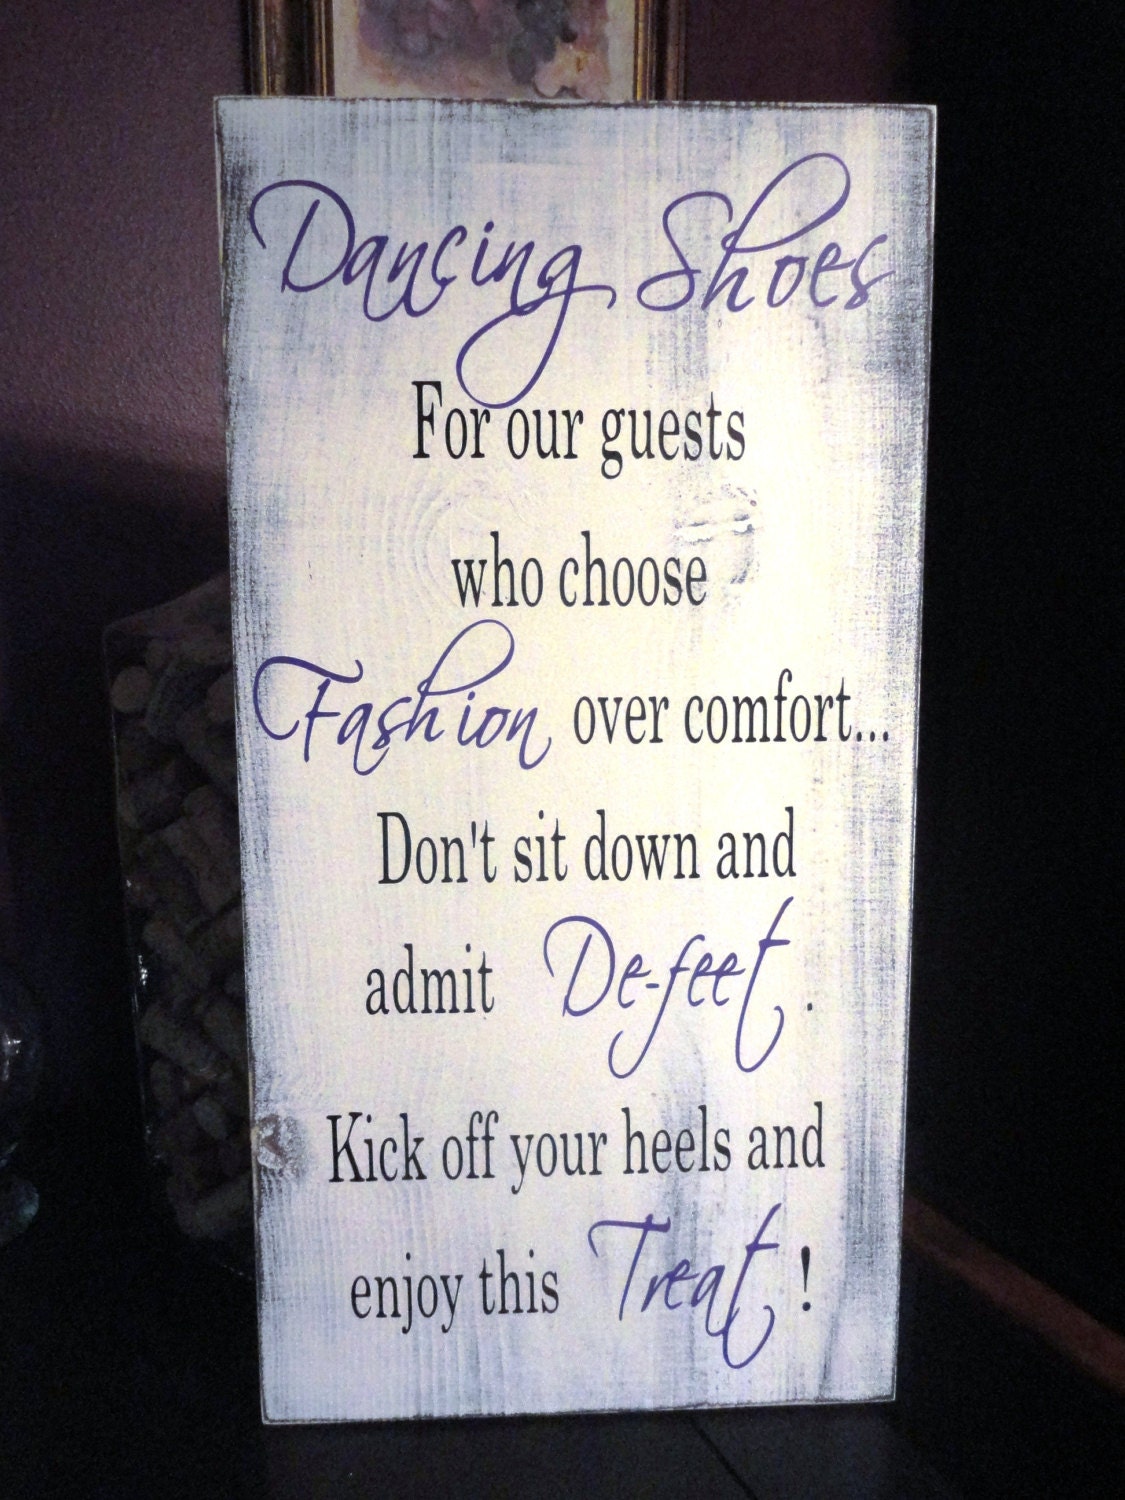 Dancing Shoes
For our guests
who choose
Fashion over comfort...
Don't sit down and
admit De-feet.
Kick off your heels and
enjoy this Treat!